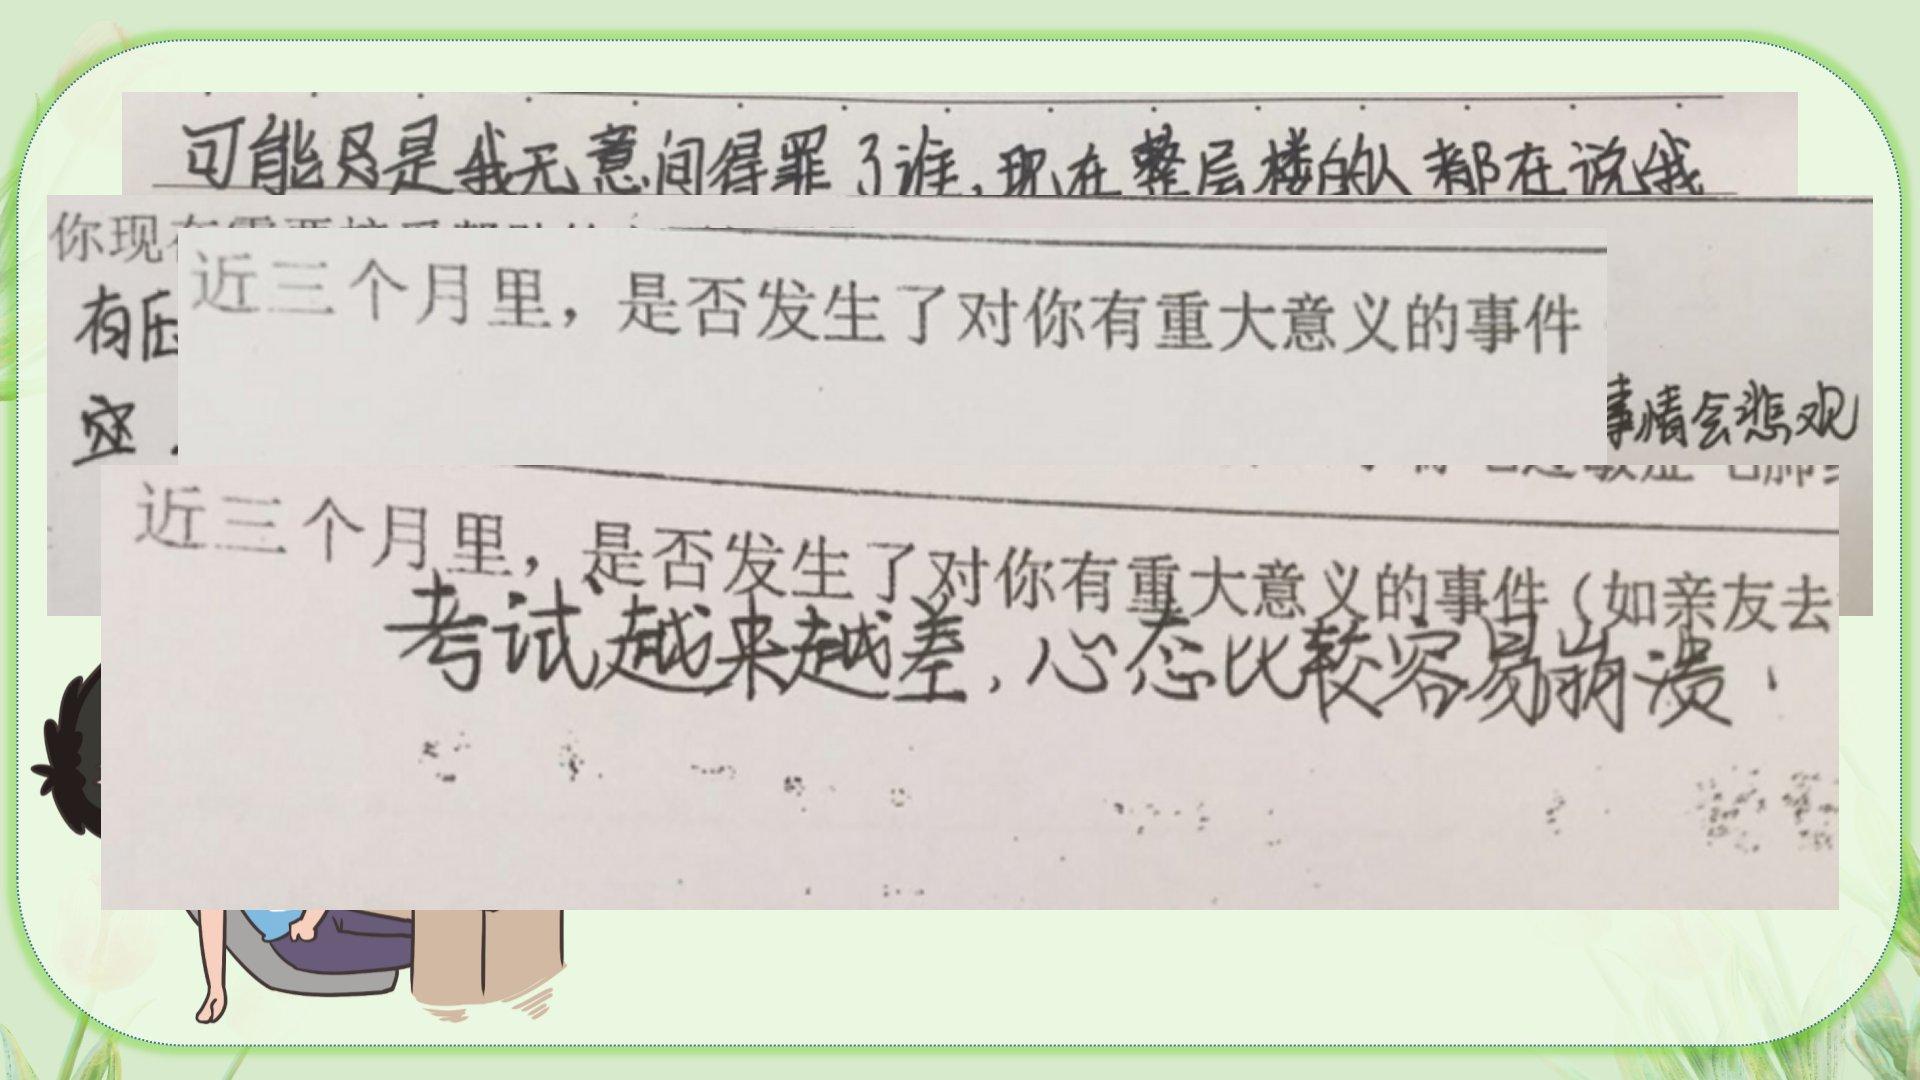 可能只是我无意间得罪了谁，现在整层楼的人都在说我
你现
有压
近三个月里，是否发生了对你有重大意义的事件
定，
事情会悲观
近三个月里，是否发生了对你有重大意义的事件（如亲友去
考试越来越差，心态比较容易崩溃，